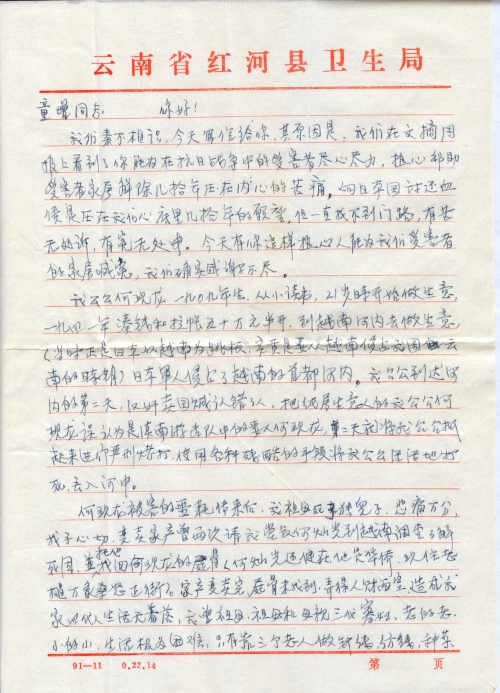 云南省红河县卫生局
童增同志 你好！
我们素不相识，今天写信给你，其原因是，我们在文摘周
报上看到了你能为在抗日战争中的受害者尽心尽力，热心帮助
受害者家属解除几拾年压在内心的苦痛。向日本国讨还血
债是压在我们心底里几拾年的愿望，但一直找不到门路，有苦
无处诉，有冤无处申。今天有你这样热心人能为我们受害者
的家属喊冤，我们确实感谢不尽。
我公公何现龙 一九〇九年生，从小读书，21岁时开始做生意，
一九四一年凑钱和拉帐五十万元半开，到越南河内去做生意，
（当时正是日本以越南为跳板，实质是要从越南侵占我国云
南的时期）日本军人侵占了越南的首都河内。我公公到达河
内的第二天，汉奸卖国贼认错人，把纯属生意人的我公公何
现龙误认为是滇南游击队中的要人何现龙，第二天就将我公公抓
起来进行严刑烤打，使用各种残酷的手段将我公公活活地打
死，丢入河中。
何现龙被害的噩耗传来后，我祖母 独儿子，悲痛万分，
找子心切，变卖家产曾两次请我堂叔何灿光到越南调查了解
死因，并找回何现龙的屍骨（何灿光还健在，他是华侨，现住
）。家产变卖完，屍骨未找到，弄得人财两空，造成我
家几代人生活无着落，我曾祖母、祖母和母亲三代寡妇，老的老，
小的小，生活极为困难，只有靠三个老人做针线，纺线，种菜
91—11 0.22.14 第 页